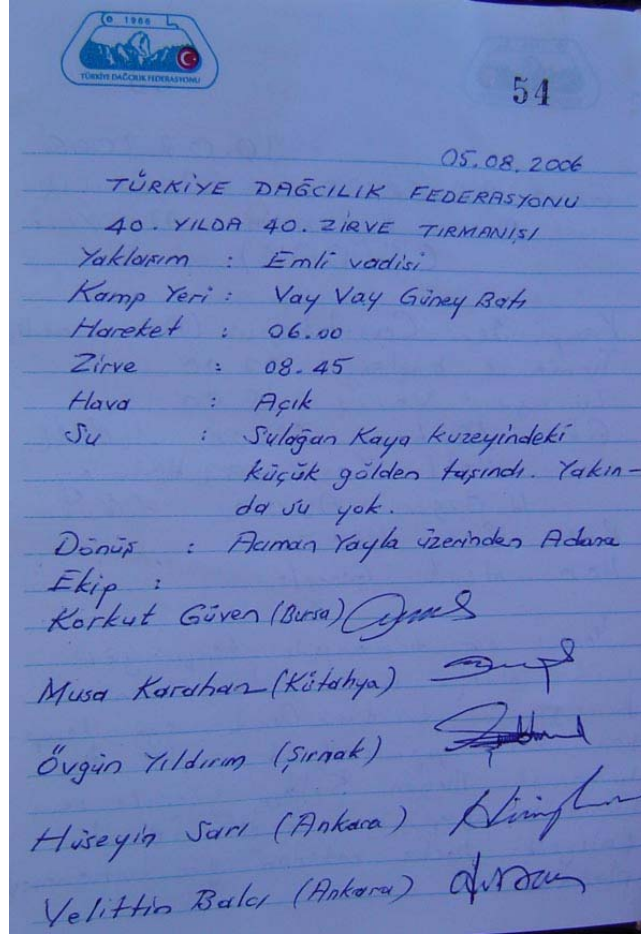 1966
TÜRKİYE DAĞCILIK FEDERASYONU
54
05.08.2006
TÜRKİYE DAĞCILIK FEDERASYONU
40. YILDA 40. ZİRVE TIRMANIŞI
Yaklaşım : Emli vadisi
Kamp Yeri : Vay Vay Güney Batı
Hareket : 06.00
Zirve : 08.45
Hava : Açık
Su : Sulağan Kaya kuzeyindeki
küçük gölden taşındı. Yakın-
da su yok.
Dönüş : Acıman Yayla üzerinden Adana
Ekip :
Korkut Güven (Bursa)
Musa Karahan (Kütahya)
Övgün Yıldırım (Şırnak)
Hüseyin Sarı (Ankara)
Velittin Balcı (Ankara)